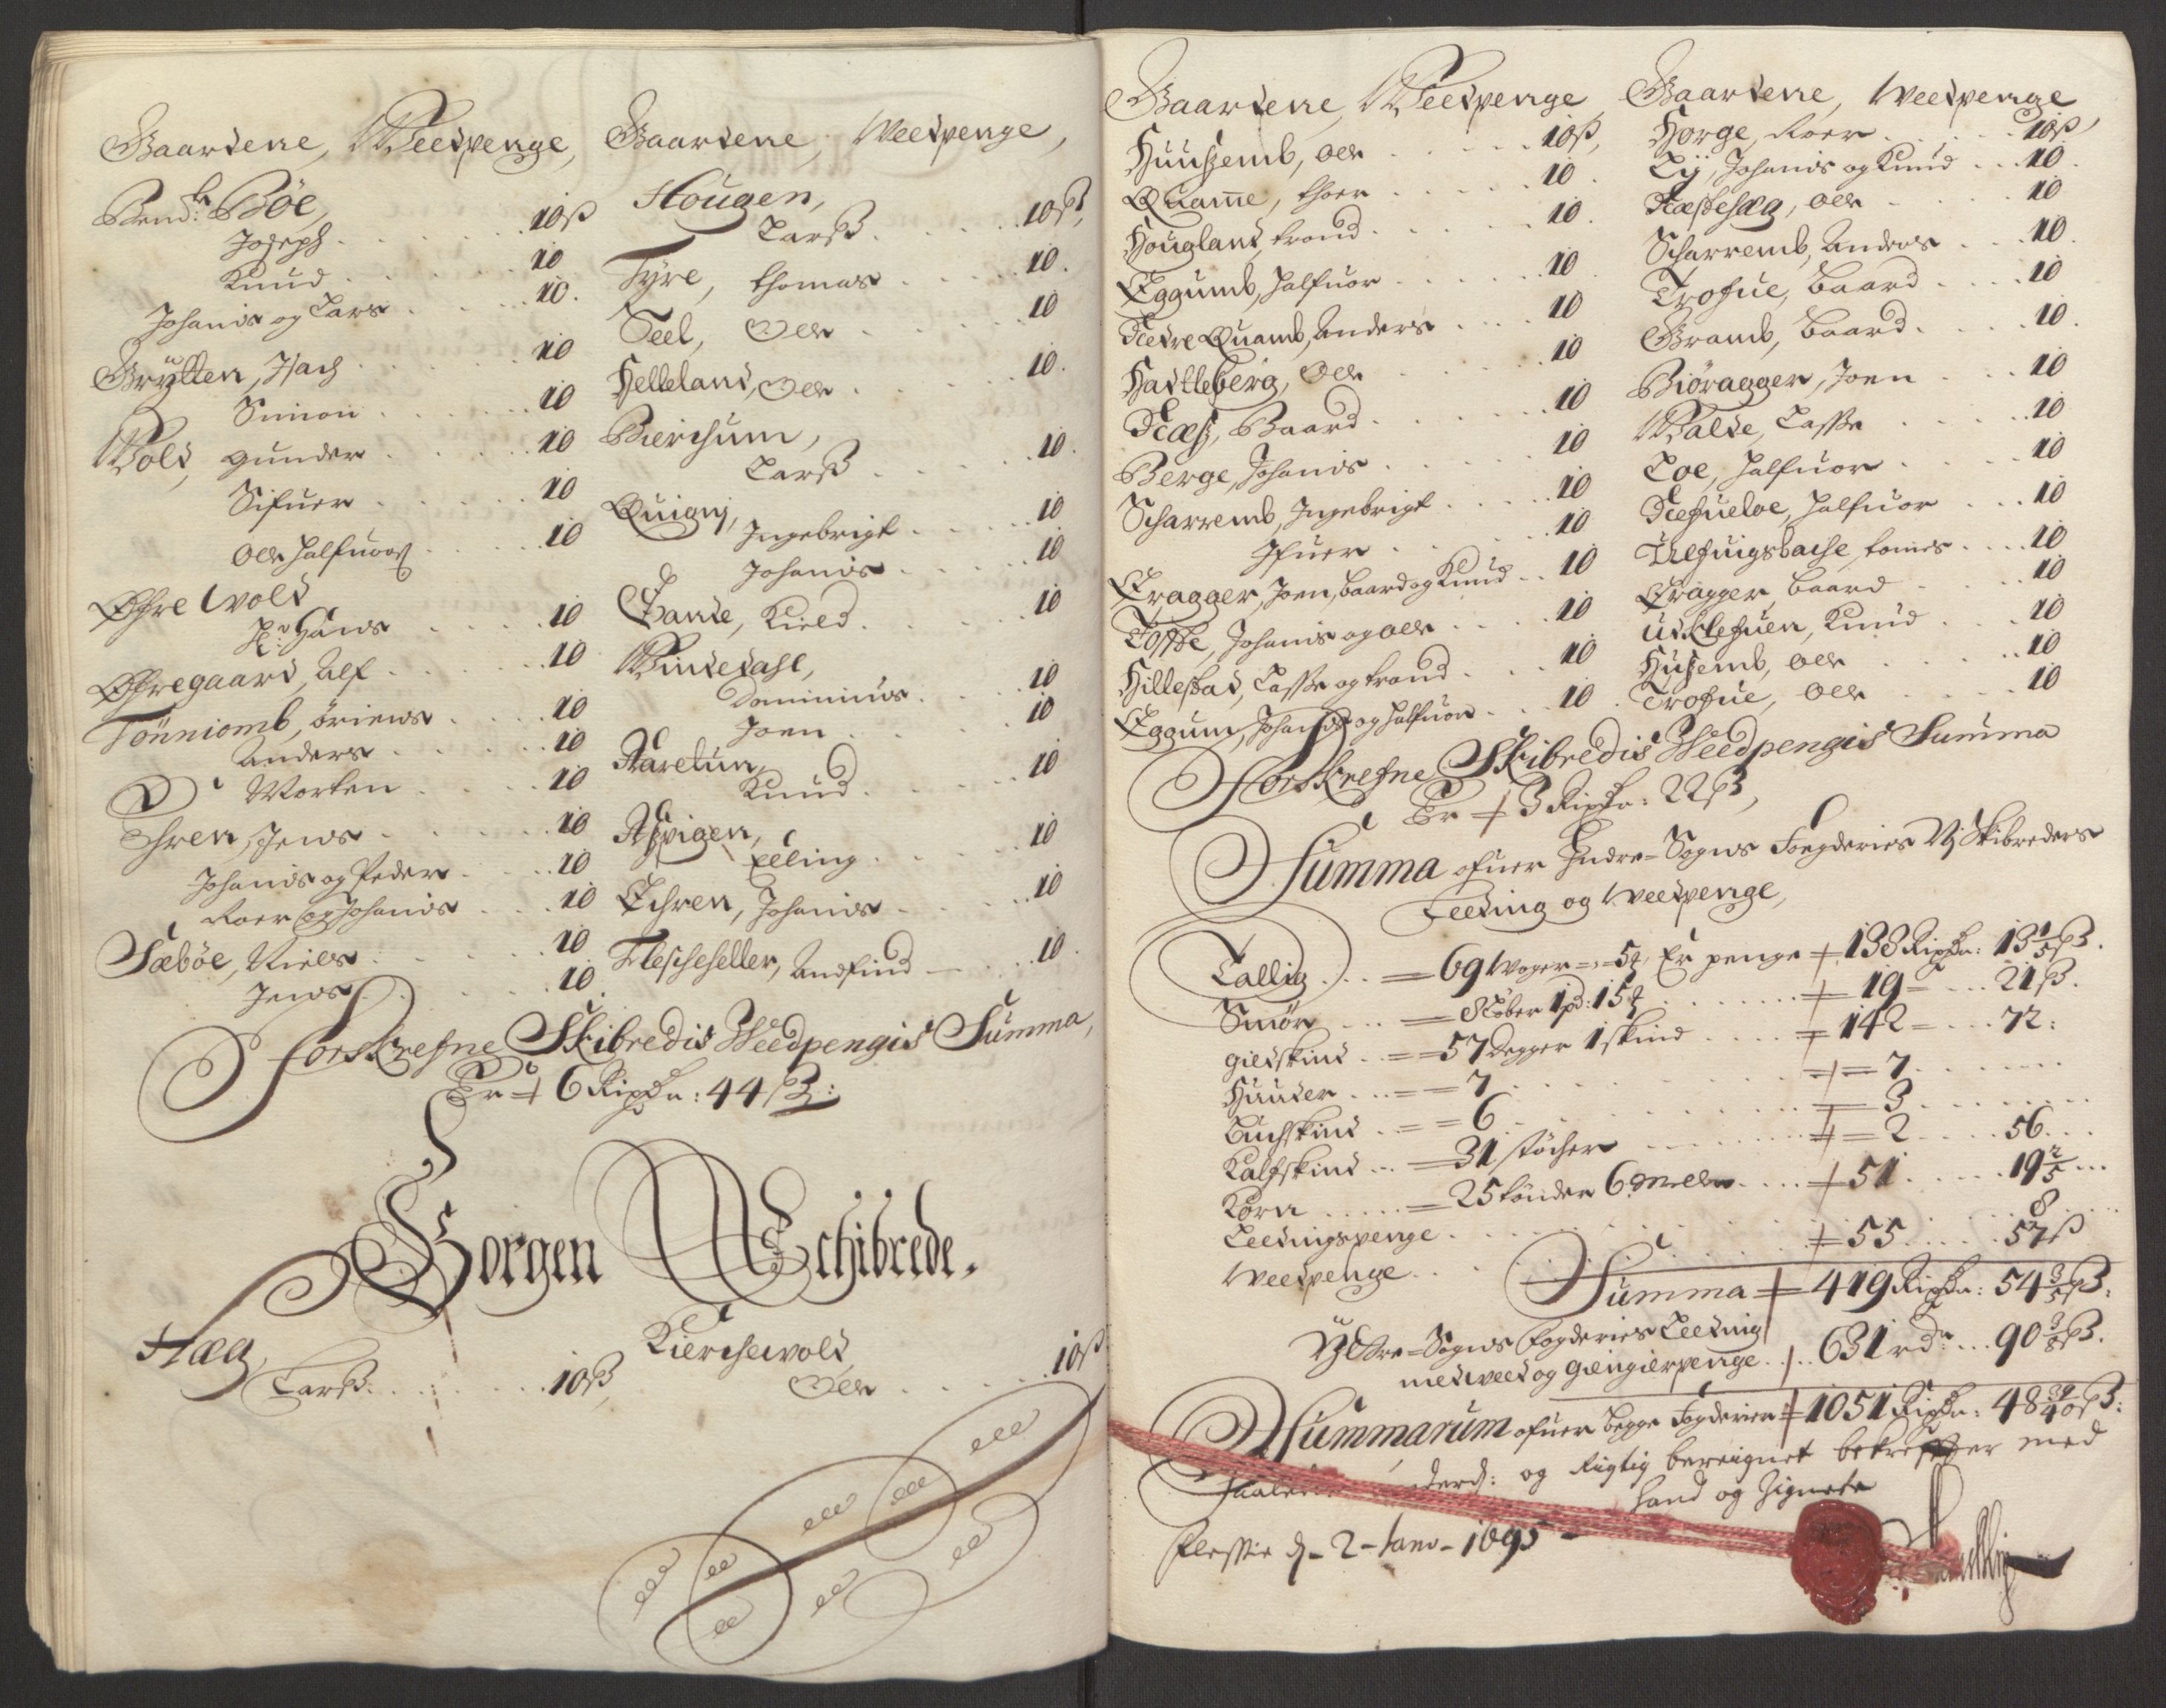 Gaardene, Weedpenge,
Bend: Böe,
Joseph . . . 10ß
Knud . . . 10
Johanis og Lars . . . 10.
Grytten, Isach . . . 10
Simon . . . 10
Wold, gunder . . . 10
Sifuer . . . 10
Ole Halfuors . . . 10
Øfre Wold
Hr: Hans . . . 10
Øfregaard, Alf . . . 10
Tönniomb, öriens . . . 10
Anders . . . 10
Morten . . . 10
Ehren, Jens . . . 10
Johanis og Peder . . . 10
Roer og Johanis . . . 10
Sæböe, Niels . . . 10
Jens . . . 10
Gaardene, Weedpenge,
Hougen,
Larß . . . 10ß,
Tyre, thomas . . . 10.
Seel, Ole . . . 10
Helleland, Ole . . . 10.
Bierchum,
Larß . . . 10.
Quigni,
Ingebrigt . . . 10
Johanis . . . 10
Lande, Kield . . . 10
Windedahl,
Dominicus . . . 10
Joen . . . 10
Aaretun,
Knud . . . 10
Aspigen,
Elling . . . 10
Echren, Johanis . . . 10
Flescheseller, Andfind . . . 10.
Forskrefne Skibredis Weedpengis Summa,
Er 6 Rixdr: 44ß:
Borgen Schibrede.
Hæg,
Larß . . . 10ß,
Kierchewold
Ole . . . 10ß
Gaardene, Weedpenge
Huusemb, Ole . . . 10ß,
Quamme, thoer . . . 10.
Hougland, trond . . . 10.
Eggumb, Halfuor . . . 10
Nedre Quamb, Anders . . . 10
Hadtleberg, Ole . . . 10
Næss, Baard . . . 10
Berge, Johanis . . . 10
Scharremb, Ingebrigt . . . 10
Ifuer . . . 10
Eragger, Joen, baard og Knud . . 10
Tosse, Johanis og Ole . . . 10
Hillestad, Lasse og trond . . . 10
Eggum, Johanis og Halfuor . . . 10.
Gaardene, Weedpenge
Horge, Roer . . . 10ß,
Lij, Johanis og Knud . . . 10.
Næssehæg, Ole . . . 10
Scharremb, Anders . . . 10.
Trofue, baard . . . 10
Gramb, baard . . . 10.
Biöragger, Joen . . . 10
Walde, Lasse . . . 10
Loe, Halfuor . . . 10
Nefueloe, Halfuor . . . 10
Ulfuigsbache, tomes . . . 10
Eragger baard . . . 10
Udklefuen, Knud . . . 10
Husemb, Ole . . . 10
Trofue, Ole . . . 10
Forskrefne Skibredis Weedpengis Summa
Er 3 Rixdr: 22ß,
Summa ofuer Indre-Sogns Foegderies Skibreders
Leeding og Weedpenge,
Tallig . . = 69 Woger = 5 , Er penge 138 Rixdr: 13 1/5 ß.
Smör . . . = Löber 1 pd: 15 . . . 19 = . . . 21ß.
giedskind . . = 57 degger 1 skind . . . 142 = . . . 72:
Huuder . . . = 7 . . . = 7 . . .
buchskind . = 6 . . . = 3 . . .
Kalfskind . . = 31 stöcher . . . = 2 . . . 56 . .
Korn . . . = 25 tönder 6 . . . 51 . . . 19 2/5 . . .
Leedingspenge . . . 8 . . .
Weedpenge . . . 55 . . . 57ß
Summa = 419 Rixdr: 54 3/5 ß:
Yttre-Sogns Fogderies Leeding
med weed og giengierpenge . . 631 rdr . . . 90 3/8 ß.
Summarum ofuer begge Fogderier 1051 Rixdr: 48 39/40 ß:
og Rigtig beregnet bekreffter med
Hand og Signete
d - 2 - Janv - 1695 -